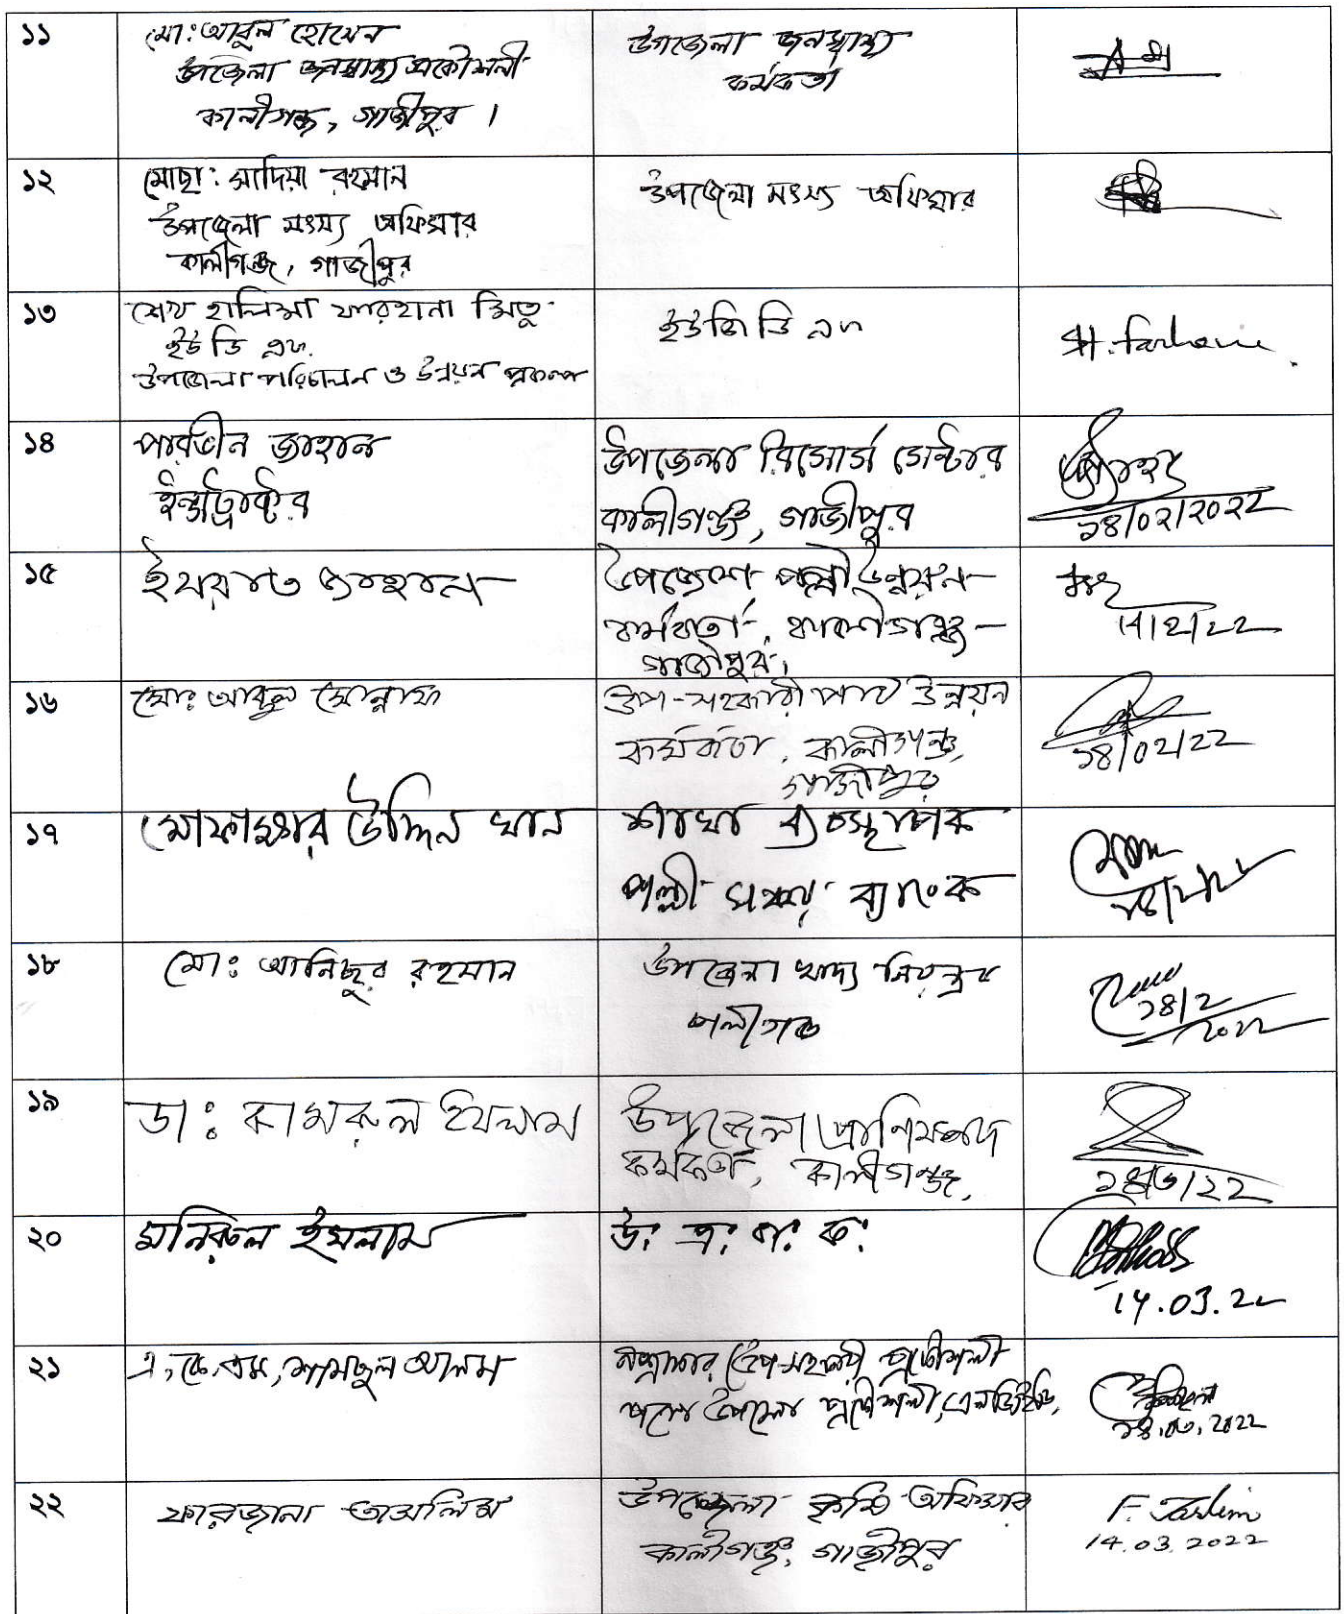 ১১
মো: আবুল হোসেন
উপজেলা জনস্বাস্থ্য প্রকৌশলী
কালীগঞ্জ, গাজীপুর ।
উপজেলা জনস্বাস্থ্য
কর্মকর্তা
১২
মোছা: সাদিয়া রহমান
উপজেলা মৎস্য অফিসার
কালীগঞ্জ, গাজীপুর
উপজেলা মৎস্য অফিসার
১৩
শেখ হালিমা ফারহানা মিতু
ইউ ডি এফ.
উপজেলা পরিচালন ও উন্নয়ন প্রকল্প
ইউ জি ডি এফ
H. Farhana
১৪
পারভীন জাহান
ইন্সট্রাক্টর
উপজেলা রিসোর্স সেন্টার
কালীগঞ্জ, গাজীপুর
১৪/০২/২০২২
১৫
ইসরাত জাহান
উপজেলা পল্লী উন্নয়ন
কর্মকর্তা, কালীগঞ্জ
গাজীপুর,
14/2/22
১৬
মো: আব্দুল মোন্নাফ
উপ-সহকারী পাট উন্নয়ন
কর্মকর্তা, কালীগঞ্জ,
গাজীপুর
১৪/০২/২২
১৭
উদ্দিন খান
শাখা ব্যবস্থাপক
পল্লী সঞ্চয় ব্যাংক
১৮
মো: আনিছুর রহমান
উপজেলা খাদ্য নিয়ন্ত্রক
কালীগঞ্জ
১৪/২
২০২২
১৯
ডা: কামরুল ইসলাম
উপজেলা প্রাণিসম্পদ
কর্মকর্তা, কালীগঞ্জ,
১৪/৩/২২
২০
মনিরুল ইসলাম
উ: প্র: বা: ক:
14.03.22
২১
এ, কে, এম, শামছুল আলম
উপ-সহকারী প্রকৌশলী
প্রকৌশলী, এলজিইডি,
১৪.০৩.২০২২
২২
ফারজানা তাসলিম
উপজেলা কৃষি অফিসার
কালীগঞ্জ, গাজীপুর
F. Taslim
14.03.2022